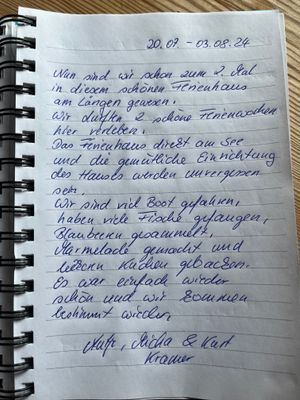 20.07. - 03.08.24
Nun sind wir schon zum 2. Mal
in diesem schönen Ferienhaus
am Lången gewesen.
Wir durften 2 schöne Ferienwochen
hier verleben.
Das Ferienhaus direkt am See
und die gemütliche Einrichtung
des Hauses werden unvergessen
sein.
Wir sind viel Boot gefahren,
haben viele Fische gefangen,
Blaubeeren gesammelt,
Marmelade gemacht und
leckeren Kuchen gebacken.
Es war einfach wieder
schön und wir kommen
bestimmt wieder.
Micha & Kurt
Kramer